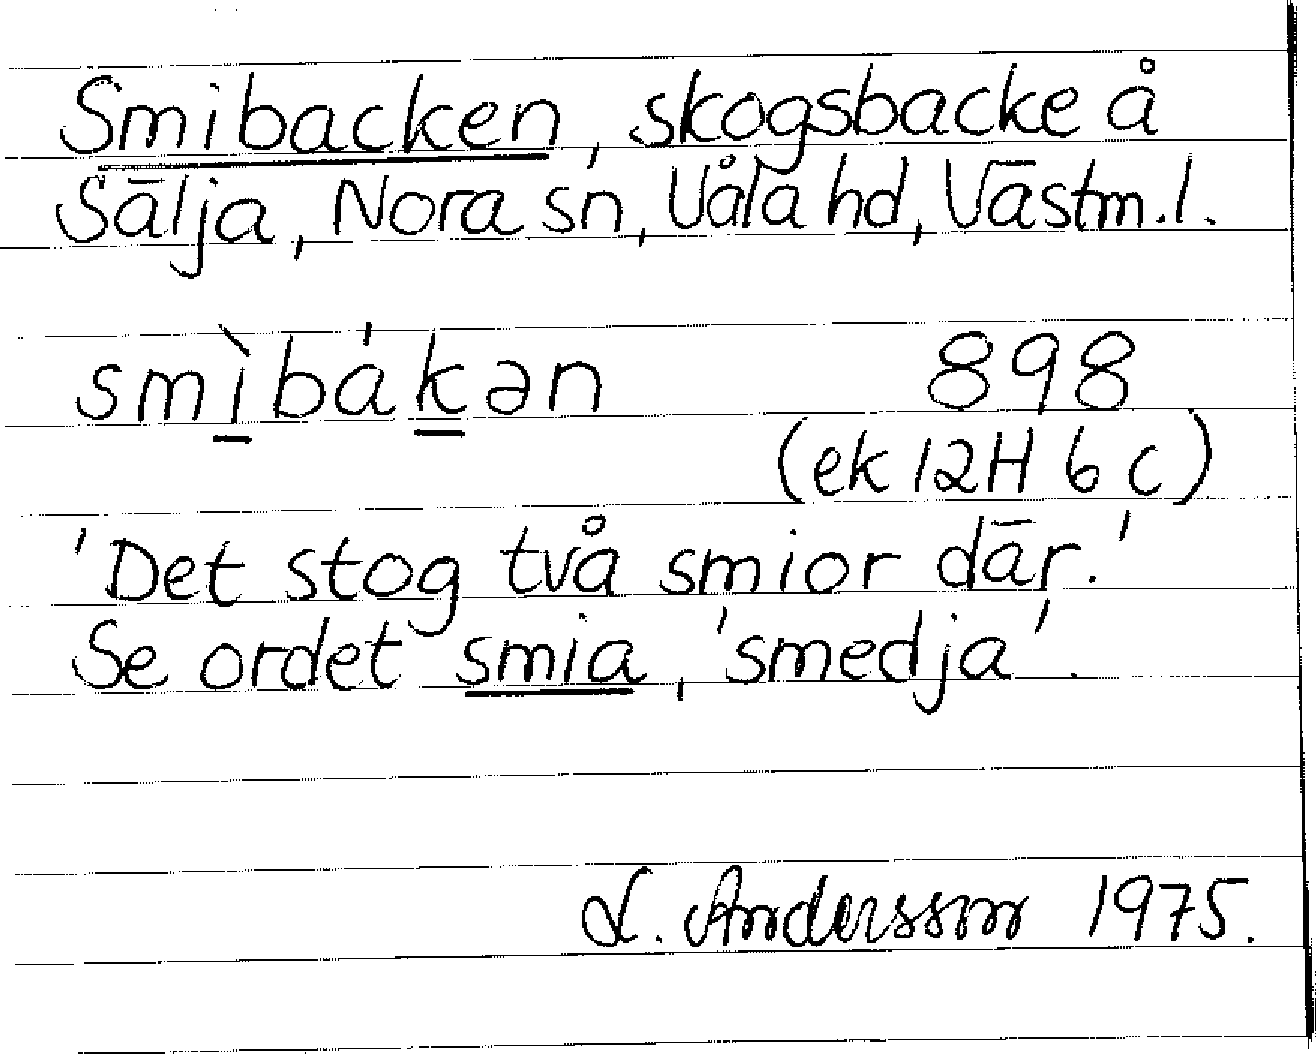 Smibacken, skogsbacke å
Sälja, Nora sn, Våla hd, Västm.l.
smìbákən 898
(ek 12H 6 c)
'Det stog två smior där.'
Se ordet smia, 'smedja'.
L. Andersson 1975.